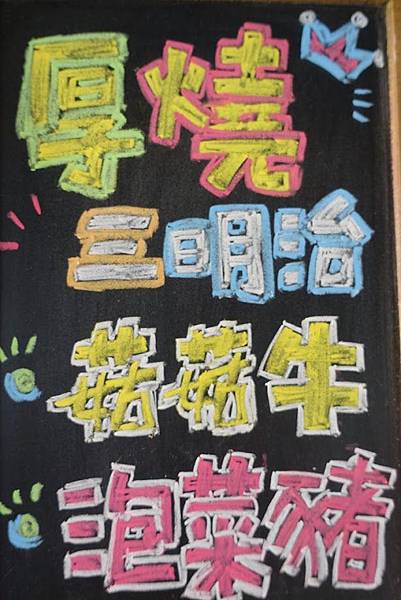 厚燒
三明治
菇菇牛
泡菜豬